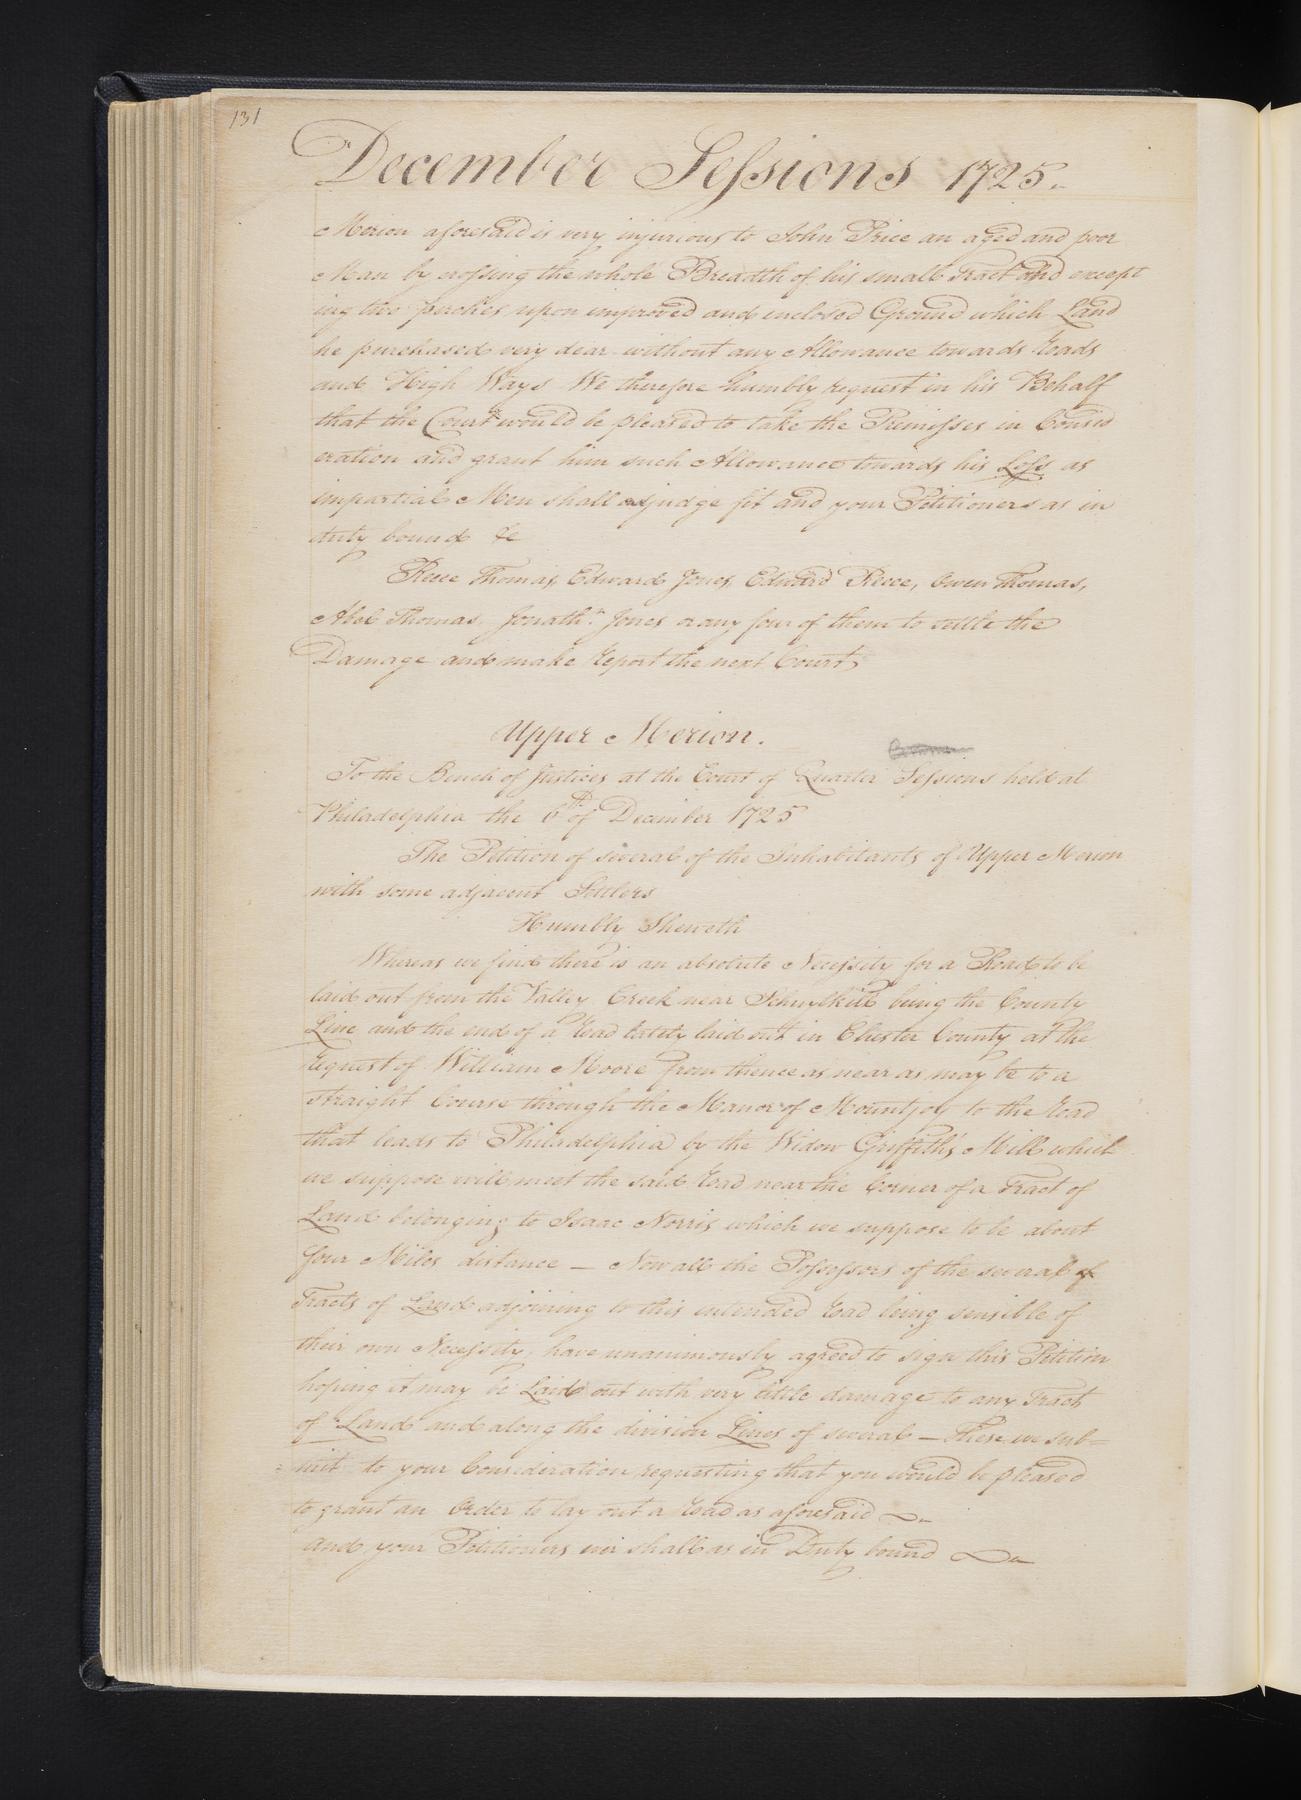 131
December Sessions 1725.
Merion aforesaid is very injurious to John Price an aged and poor
Man by crossing the whole Breadth of his small Tract and except
ing two perches upon improved and inclosed Ground which Land
he purchased very dear without any Allowance towards Roads
and High Ways We therefore humbly request in his Behalf
that the Court would be pleased to take the Premisses in Consid
eration and grant him such Allowance towards his Loss as
impartial Men shall adjudge fit and your Petitioners as in
duty bound &c
Reece Thomas, Edward Jones, Edward Reece, Owen Thomas,
Abel Thomas, Jonathn. Jones or any four of them to settle the
Damage and make report the next Court,
Upper Merion.
To the Bench of Justices at the Court of Quarter Sessions held at
Philadelphia the 6th of December 1725
The Petition of several of the Inhabitants of Upper Merion
with some adjacent Settlers
Humbly Sheweth
Whereas we find there is an absolute Necessity for a Road to be
laid out from the Valley Creek near Schuylkill being the County
Line and the end of a road lately laid out in Chester County at the
request of William Moore from thence as near as may be to a
straight Course through the Manor of Mountjoy to the road
that leads to Philadelphia by the Widow Griffith's Mill which
we suppose will meet the said road near the Corner of a Tract of
Land belonging to Isaac Norris which we suppose to be about
four Miles distance — Now all the Possessors of the several of
Tracts of Land adjoining to this intended road being sensible of
their own Necessity, have unanimously agreed to sign this Petition
hoping it may be Laid out with very little damage to any Tract
of Land and along the division Lines of several — These we sub=
mit to your Consideration requesting that you would be pleased
to grant an Order to lay out a road as aforesaid
And your Petitioners ever shall as in Duty bound